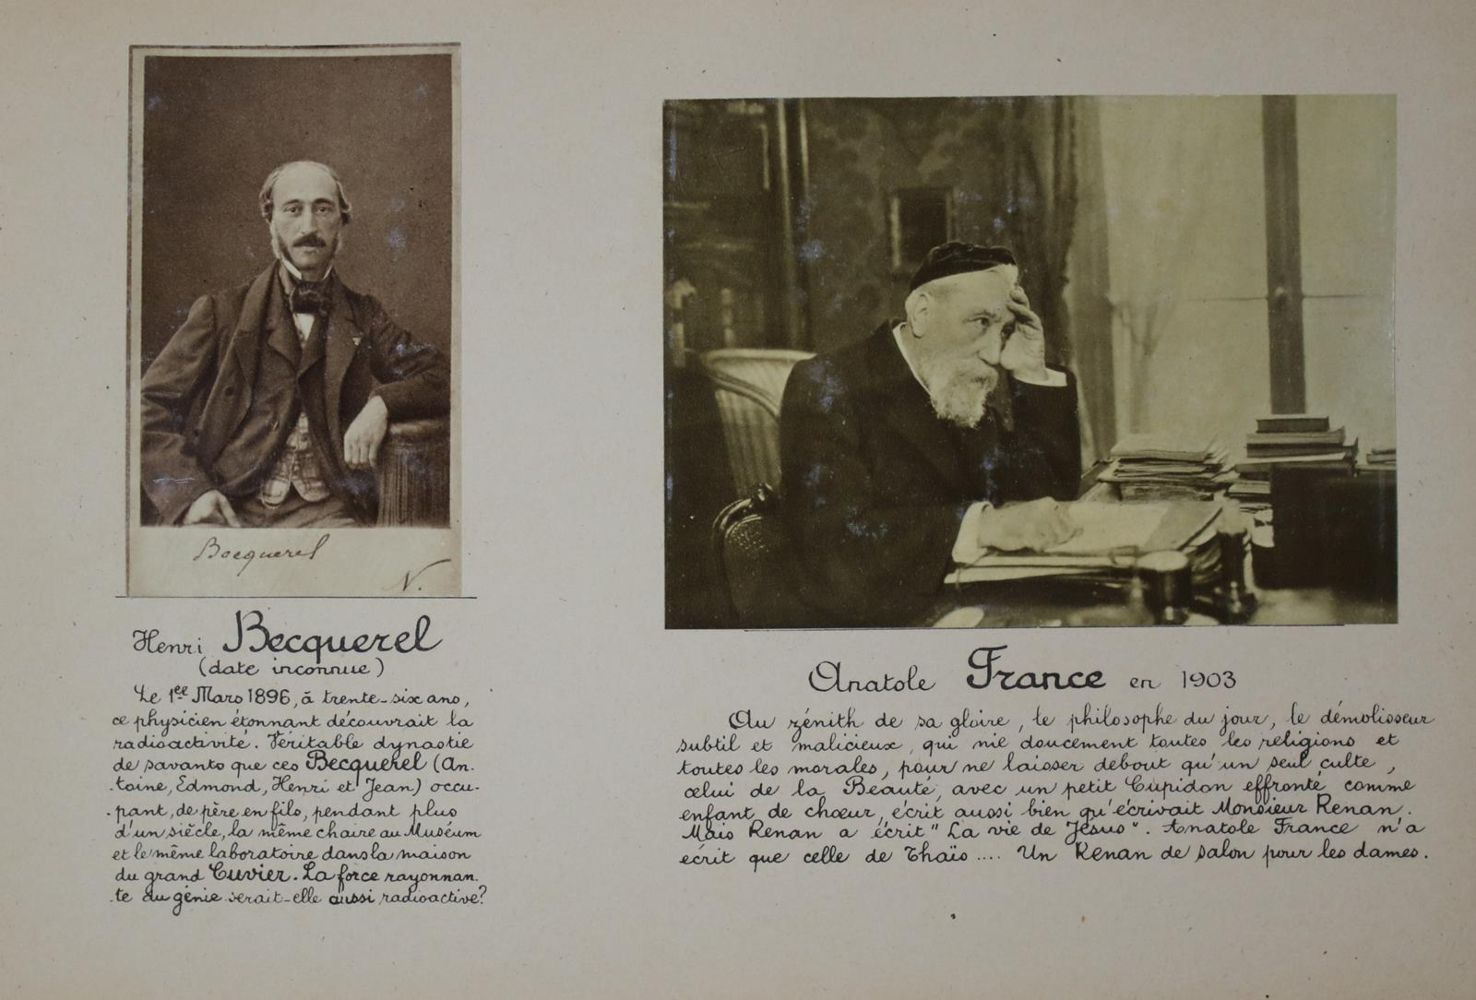 Becquerel
N.
Henri Becquerel
(date inconnue)
Le 1er Mars 1896, à trente-six ans,
ce physicien étonnant découvrait la
radioactivité. Véritable dynastie
de savants que ces Becquerel (An-
-toine, Edmond, Henri et Jean) occu-
-pant, de père en fils, pendant plus
d'un siècle, la même chaire au Muséum
et le même laboratoire dans la maison
du grand Cuvier. La force rayonnan-
-te du génie serait-elle aussi radioactive?
Anatole France en 1903
Au zénith de sa gloire, le philosophe du jour, le démolisseur
subtil et malicieux, qui nie doucement toutes les religions et
toutes les morales, pour ne laisser debout qu'un seul culte,
celui de la Beauté, avec un petit Cupidon effronté comme
enfant de chœur, écrit aussi bien qu'écrivait Monsieur Renan.
Mais Renan a écrit "La vie de Jésus". Anatole France n'a
écrit que celle de Thaïs .... Un Renan de salon pour les dames.